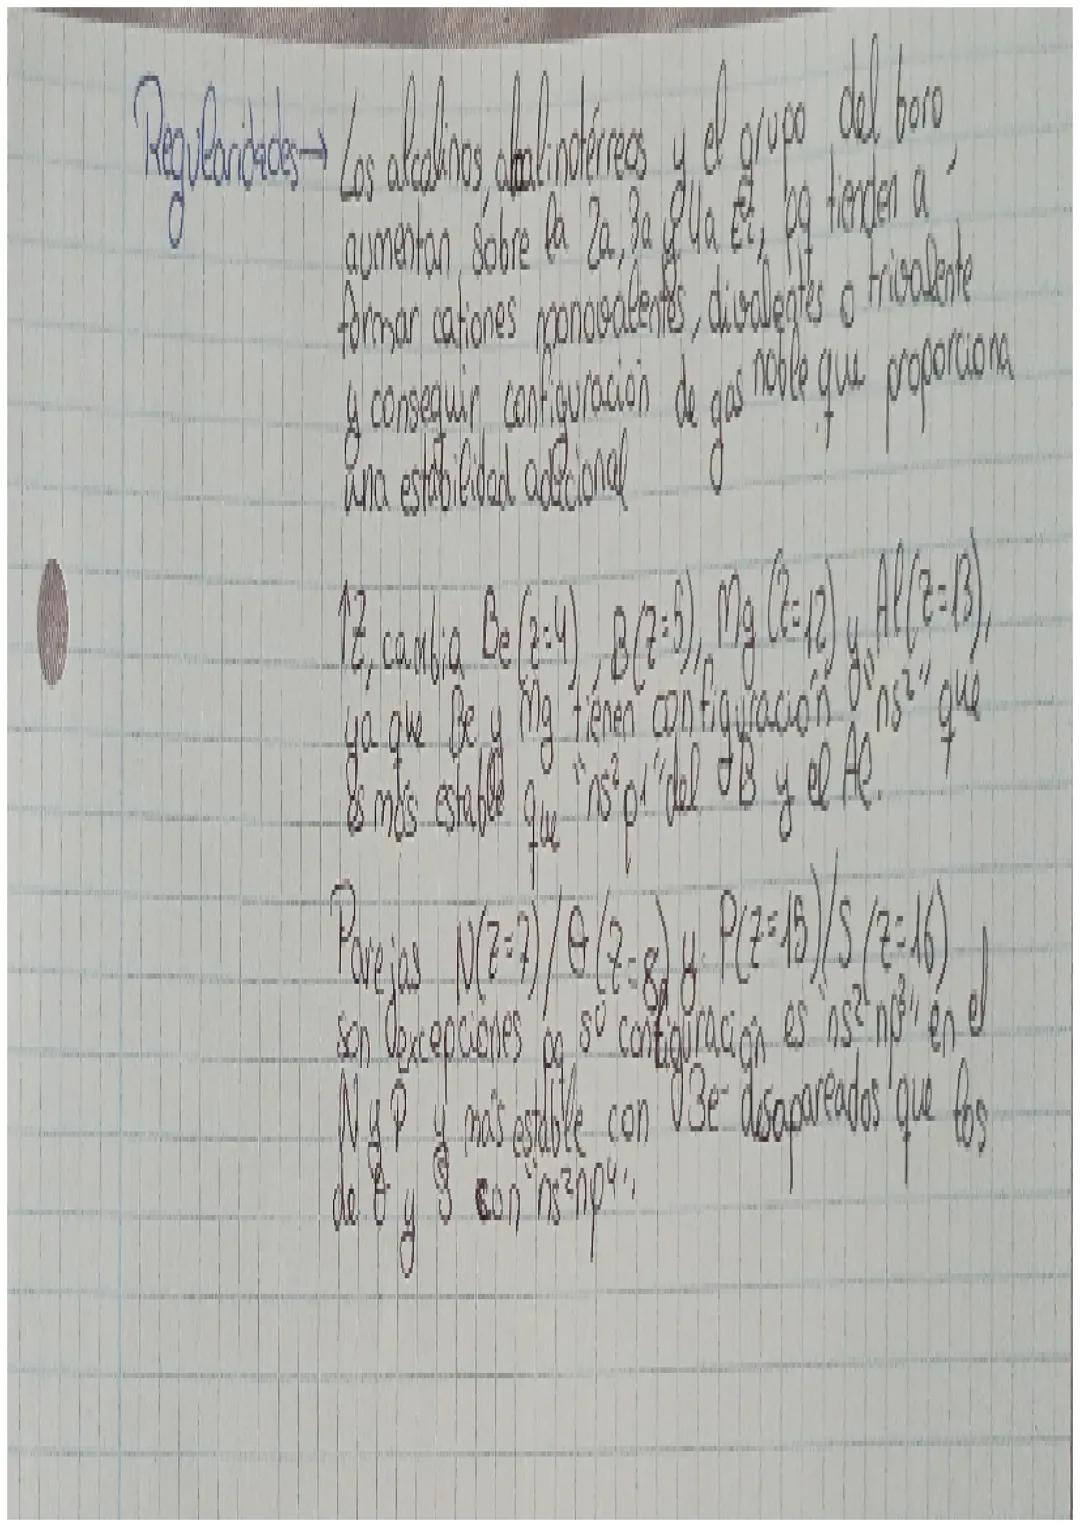 Regularidades → Los alcalinos, alcalinotérreos y el grupo del boro,
aumentan sobre la 2a, 3a y 4a EI, pq tienden a
formar cationes monovalentes, divalentes o trivalente
y conseguir configuración de gas noble que proporciona
una estabilidad adicional
1Z, cambia Be (z=4), B(z=5), Mg (z=12) y Al(z=13),
ya que Be y Mg tienen configuración "ns²" que
es más estable que "ns²p1" del B y el Al.
Parejas N(z=7)/O(z=8) y P(z=15)/S(z=16)
son excepciones pq su configuración es "ns²np³" en el
N y P y más estable con 3e⁻ desapareados que los
de O y S con "ns²np⁴".